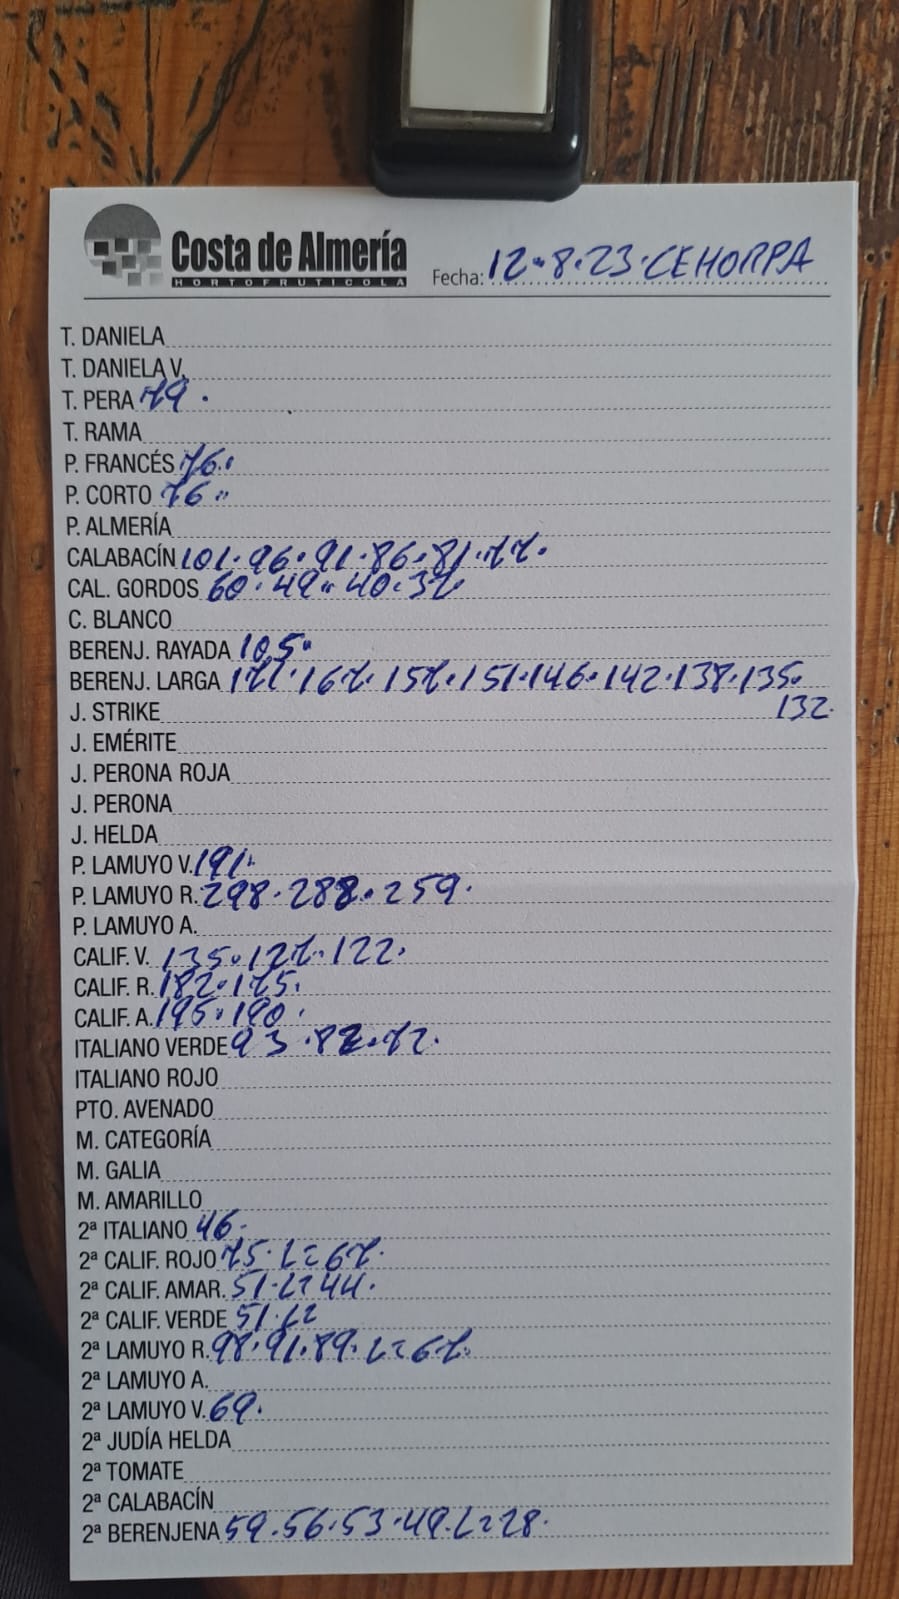 Costa de Almería
HORTOFRUTICOLA
Fecha: 12.8.23.CEHORPA
T. DANIELA
T. DANIELA V.
T. PERA 79.
T. RAMA
P. FRANCÉS 76.
P. CORTO 76..
P. ALMERÍA
CALABACÍN 101.96.91.86.81.77.
CAL. GORDOS 60.49..40.37
C. BLANCO
BERENJ. RAYADA 105.
BERENJ. LARGA 171.167.157.151.146.142.138.135.
132.
J. STRIKE
J. EMÉRITE
J. PERONA ROJA
J. PERONA
J. HELDA
P. LAMUYO V. 191.
P. LAMUYO R. 298.288.259.
P. LAMUYO A.
CALIF. V. 135.127.122.
CALIF. R. 182.175.
CALIF. A. 195.190.
ITALIANO VERDE 93.82.72.
ITALIANO ROJO
PTO. AVENADO
M. CATEGORÍA
M. GALIA
M. AMARILLO
2ª ITALIANO 46.
2ª CALIF. ROJO 75.L=67.
2ª CALIF. AMAR. 51.L=44.
2ª CALIF. VERDE 51.L=
2ª LAMUYO R. 98.91.89.L=67.
2ª LAMUYO A.
2ª LAMUYO V. 69.
2ª JUDÍA HELDA
2ª TOMATE
2ª CALABACÍN
2ª BERENJENA 59.56.53.49.L=28.